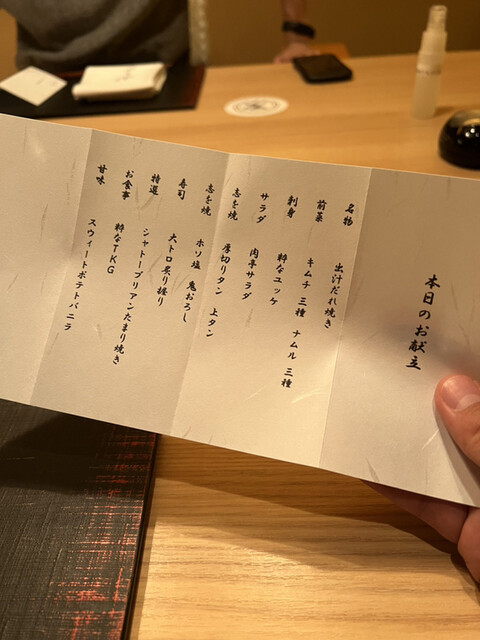 本日のお献立
名物 出汁だれ焼き
前菜 キムチ 三種 ナムル 三種
刺身 粋なユッケ
サラダ 肉亭サラダ
志を焼 厚切りタン 上タン
志を焼 ホソ塩 鬼おろし
寿司 大トロ炙り握り
特選 シャトーブリアンたまり焼き
お食事 粋なTKG
甘味 スウィートポテトバニラ